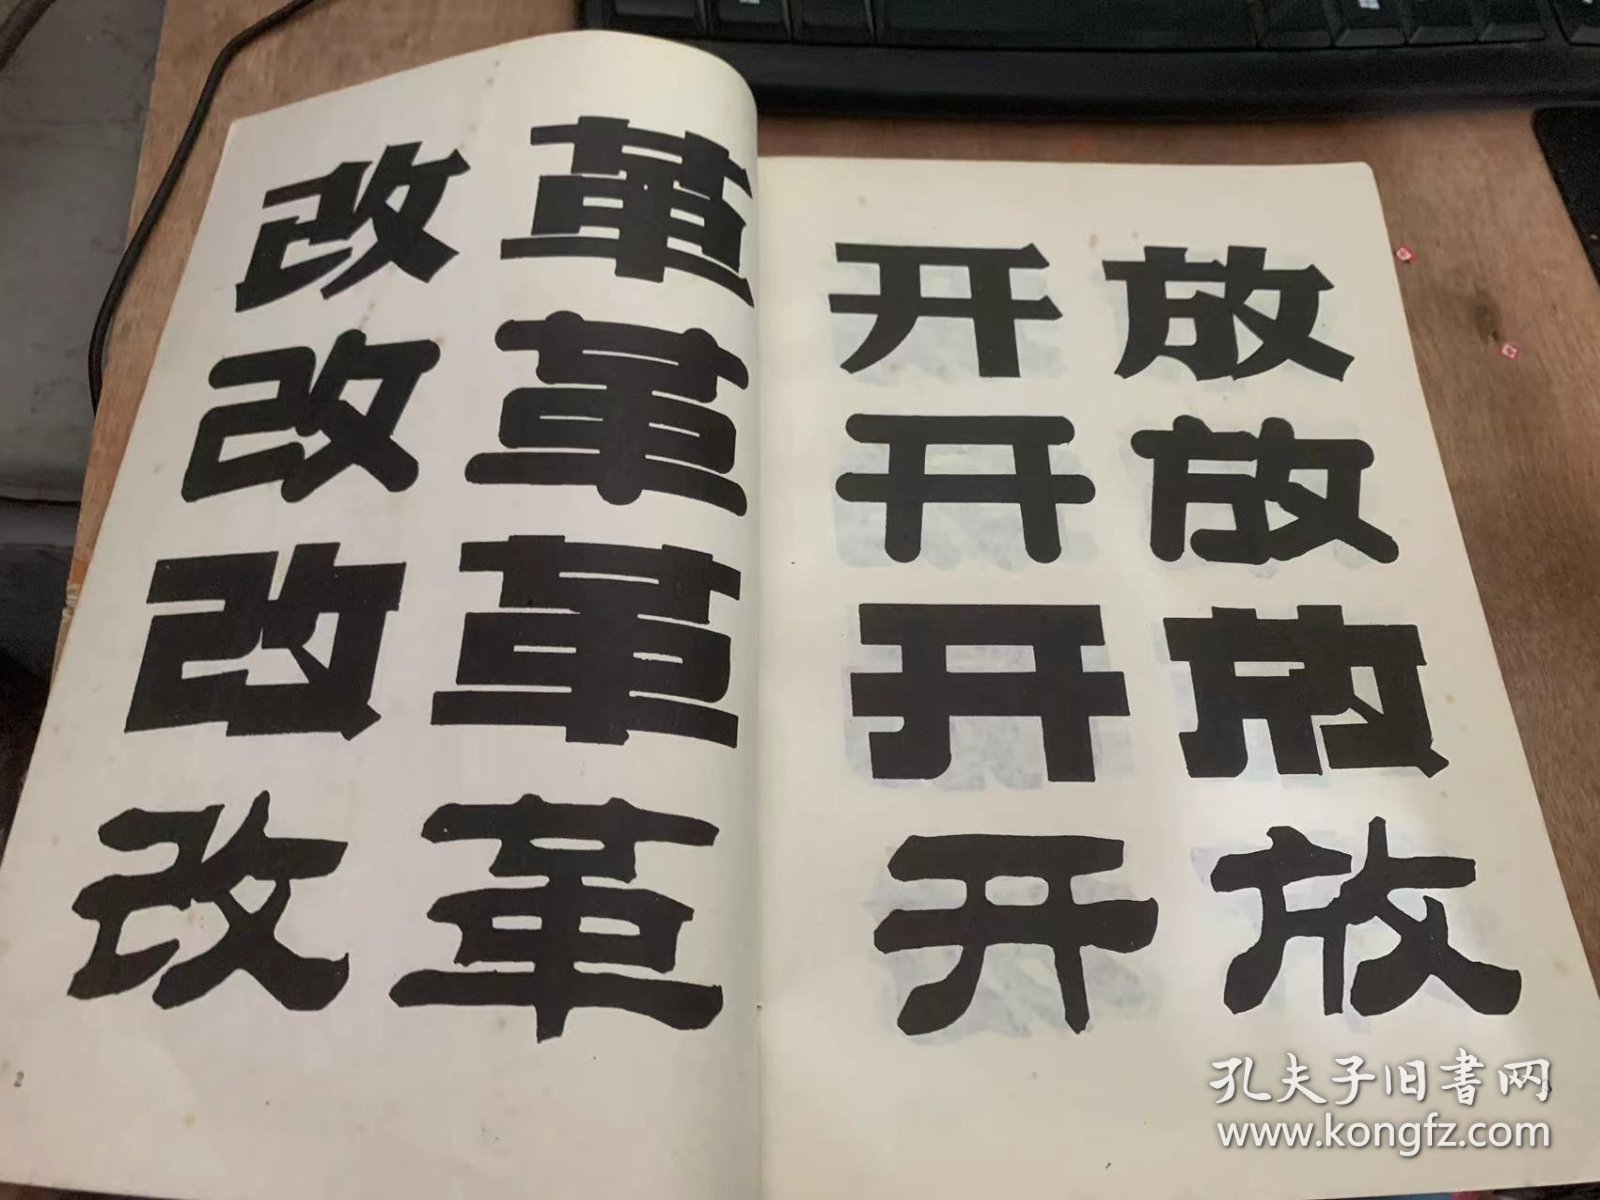 改革
改革
改革
改革
2
开放
开放
开放
开放
3
孔夫子旧書网
www.kongfz.com